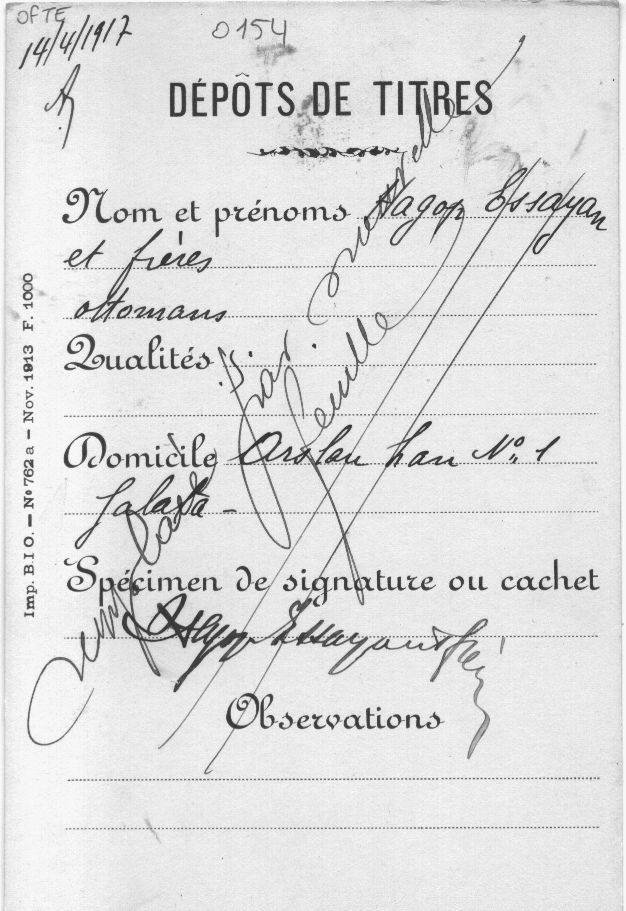 OFTE
14/4/1917
0154
DÉPÔTS DE TITRES
Nom et prénoms Hagop Essayan
et frères
ottomans
Qualités
Domicile Arslan han No. 1
Galata -
Spécimen de signature ou cachet
Hagop Essayan & frères
Observations
Remplacé par nouvelle
feuille
Imp. B.I.O. — No 762 a — Nov. 1913 F. 1000